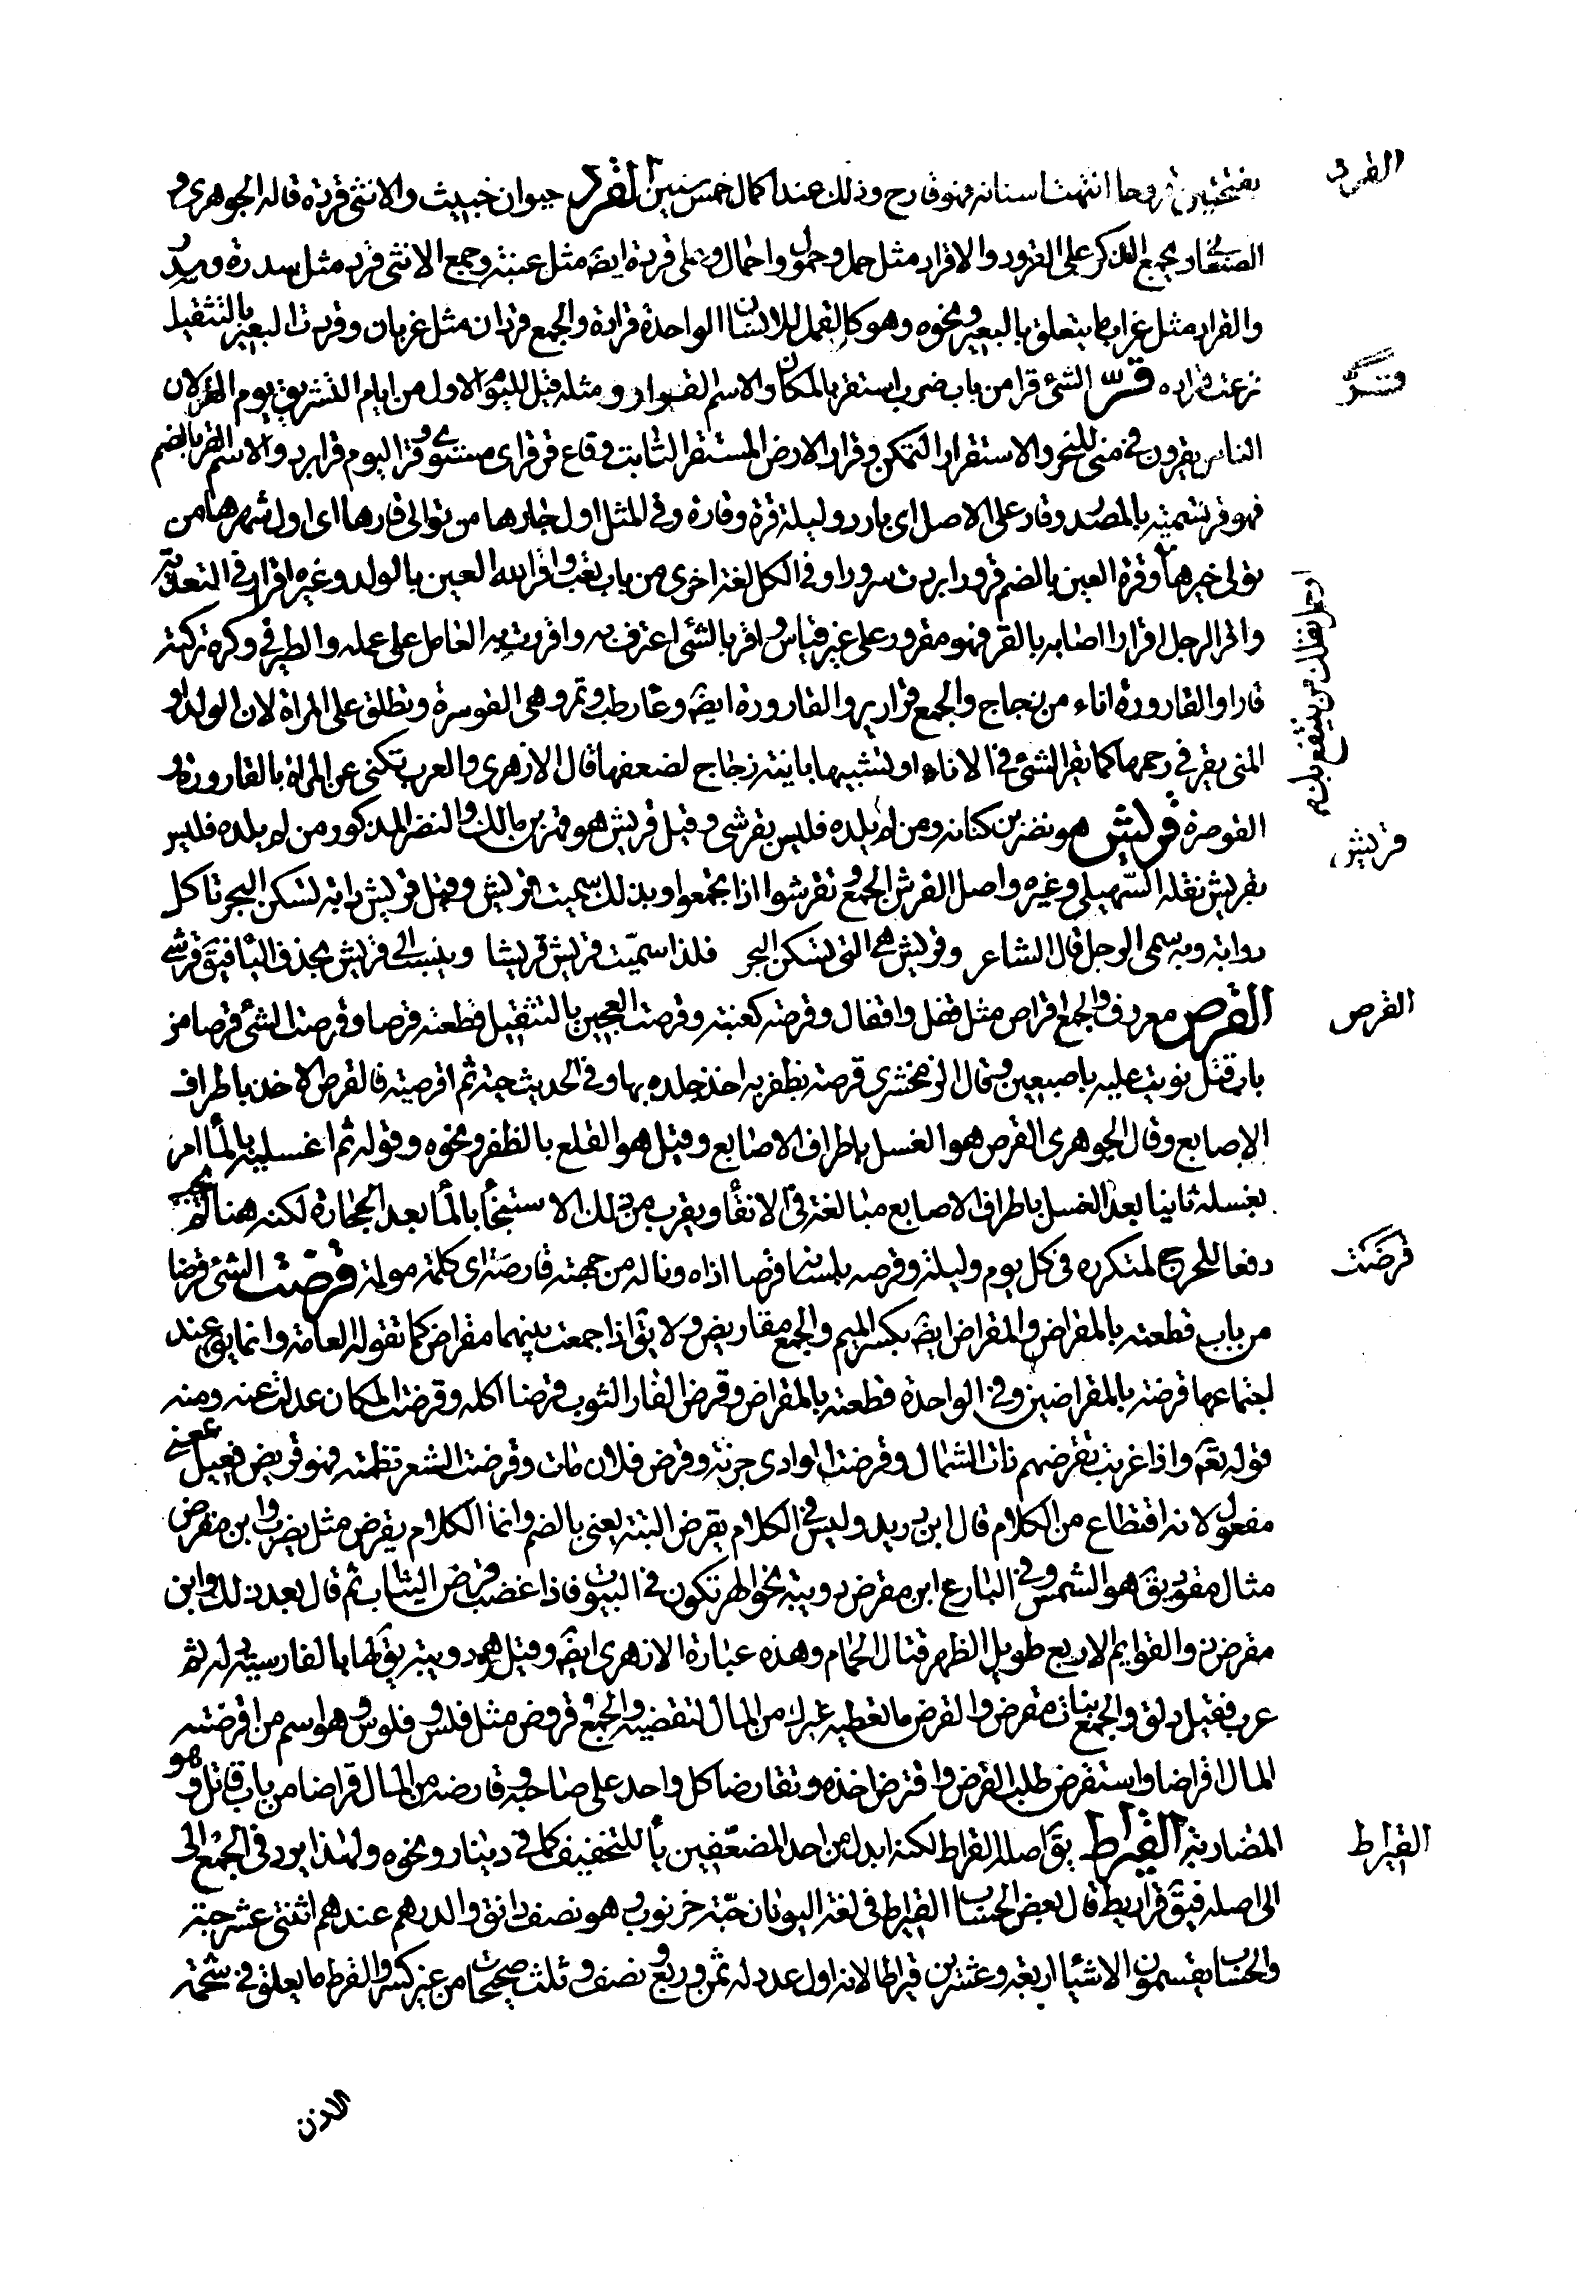 القرد
بفتحتين قروحا انتهت اسنانه فهو قارح وذلك عند اكمال خمس سنين القرد حيوان خبيث والانثى قردة قاله الجوهري و
الصغاني ويجمع الذكر على القرود والاقراد مثل حمل وحمول واحمال وعلى قردة ايضا مثل عنبة وجمع الانثى قرد مثل سدرة وسدر
والقراد مثل غراب ما يتعلق بالبعير ونحوه وهو كالقمل للانسان الواحدة قرادة والجمع قردان مثل غربان وقردت البعير بالتثقيل
قر
نزعت قراده قرّ الشئ قرا من باب ضرب استقر بالمكان والاسم القرار ومثله قيل لليوم الاول من ايام التشريق يوم القر لان
الناس يقرون في منى للنحر والاستقرار التمكن وقرار الارض المستقر الثابت وقاع قرقر اى مستوى وقر اليوم قرا برد والاسم القر بالضم
فهو قر تسمية بالمصدر وقار على الاصل اى بارد وليلة قرة وقارة وفي المثل اول حارها من تولى قارها اى اول شرها من
تولى خيرها وقرة العين بالضم قرورا بردت سرورا وفي الكل لغة اخرى من باب تعب واقر الله العين بالولد وغيره اقرارا في التعدية
واقر الرجل اقرارا اصابه بالقر فهو مقرور على غير قياس واقر بالشئ اعترف به واقررت به العامل على عمله والطير في وكره تركته
قارا والقارورة اناء من زجاج والجمع قوارير والقارورة ايضا وعاء رطب وتمر وهى القوسرة وتطلق على المراة لان الولد او
المنى يقر في رحمها كما يقر الشئ في الاناء او تشبيها بانية زجاج لضعفها قال الازهرى والعرب تكنى عن المراة بالقارورة و
قريش
القوصرة قريش هو نضر بن كنانه ومن لم يلده فليس بقرشى وقيل قريش هو فهر بن مالك والنضر المذكور من لم يلده فليس
بقريش نقله السهيلى وغيره واصل القرش الجمع وتقرشوا اذا تجمعوا وبذلك سميت قريش وقيل قريش دابة تسكن البحر تاكل
دوابه وبه سمى الرجل قال الشاعر وقريش هى التى تسكن البحر فلذا سميّت قريش قريشا وينسب الى قريش بحذف اليا فيق قرشى
القرص
القرص معروف والجمع اقراص مثل قفل واقفال وقرصه كعنبة وقرصت العجين بالتثقيل قطعته قرصا وقرصت الشئ قرصا من
باب قتل لويت عليه باصبعين وقال الزمخشرى قرصه بظفريه اخذ جلده بهما وفي الحديث حتيه ثم اقرصيه فالقرص الاخذ باطراف
الاصابع وقال الجوهرى القرص هو الغسل باطراف الاصابع وقيل هو القلع بالظفر ونحوه وقوله ثم اغسليه بالما امر
بغسله ثانيا بعد الغسل باطراف الاصابع مبالغة في الانقا ويقرب من ذلك الاستنجا بالما بعد الحجارة لكنه هنا
قرضت
دفعا للحرج لمتكرره في كل يوم وليلة وقرصه بلسانه قرصا اذاه وناله من جهته قارصة اى كلمة مولمة قرضت الشئ قرضا
من باب قطعته بالمقراض والمقراض ايضا بكسر الميم والجمع مقاريض ولا يق اذا جمعت بينهما مقراض كما تقوله العامه وانما يق عند
اجتماعهما قرضته بالمقراضين وفي الواحدة قطعته بالمقراض وقرض الفار الثوب قرضا اكله وقرضت المكان عدلت عنه ومنه
قوله تعم واذا غربت تقرضهم ذات الشمال وقرضت الوادى جزته وقرض فلان مات وقرضت الشعر نظمته فهو قريض فعيل بمعنى
مفعول لانه اقتطاع من الكلام قال ابن دريد وليس في الكلام يقرض البتة يعنى بالضم وانما الكلام يقرض مثل يضرب وابن مقرض
مثال مقود يق هو النمس وفي البارع ابن مقرض دويبة نحو الهر تكون في البيوت فاذا غضب قرض الثياب ثم قال بعد ذلك وابن
مقرض ذو القوايم الاربع طويل الظهر قتال الحمام وهذه عبارة الازهرى ايضا وقيل هى دويبة يق لها بالفارسية دله ثم
عرب فقيل دلق والجمع بنات مقرض والقرض ما تعطيه غيرك من المال لتقضيه والجمع قروض مثل فلس وفلوس وهو اسم من اقرضته
المال اقراضا واستقرض طلب القرض واقترض اخذه وتقارضا كل واحد على صاحبه وقارضه من المال قراضا من باب قاتل وهو
القيراط
المضاربة القيراط يق اصله القراط لكنه ابدل من احد المضعّفين يأ للتخفيف كما في دينار ونحوه ولهذا يرد في الجمع الى
الى اصله فيق قراريط قال بعض الحساب القيراط في لغة اليونان حبّة خرنوب وهو نصف دانق والدرهم عندهم اثنتى عشر حبة
والحساب يقسمون الاشيا اربعة وعشرين قيراطا لانه اول عدد له ثمن وربع ونصف وثلث صحيحات من غير كسر والقرط ما يعلق في شحمة
الاذن